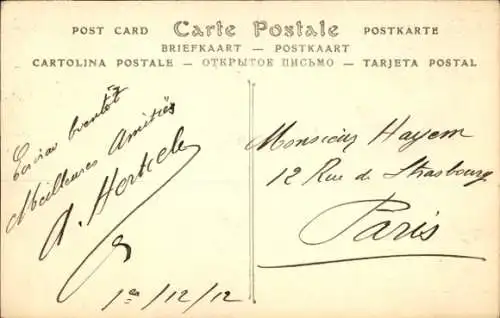 POST CARD Carte Postale POSTKARTE
BRIEFKAART — POSTKAART
CARTOLINA POSTALE — ОТКРЫТОЕ ПИСЬМО — TARJETA POSTAL
bientôt
Meilleures Amitiés
A.
1er/12/12
Monsieur Hayem
12 Rue de Strasbourg
Paris